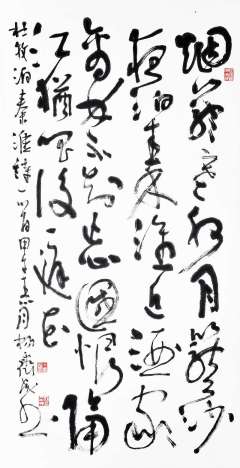 烟籠寒水月籠沙
夜泊秦淮近酒家
商女不知亡國恨隔
江猶唱後庭花
杜牧泊秦淮詩一首甲午月